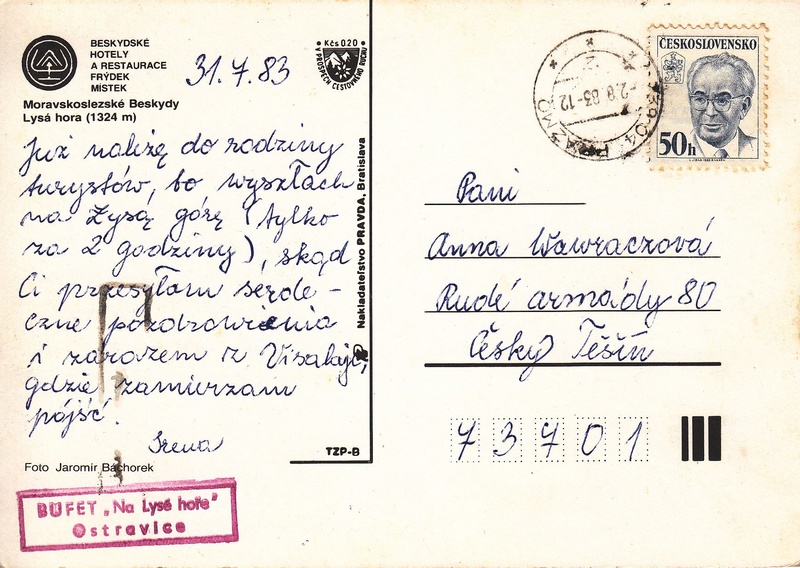 BESKYDSKÉ
HOTELY
A RESTAURACE
FRÝDEK
MÍSTEK
31.7.83
Kčs 0,20
V PROSPĚCH CESTOVNÍHO RUCHU
Moravskoslezské Beskydy
Lysá hora (1324 m)
Już należę do rodziny
turystów, bo wyszłach
na Łysą górę (tylko
za 2 godziny), skąd
Ci przesyłam serde-
czne pozdrowienia
i zarazem z Visalaji,
gdzie zamierzam
pójść.
Irena
Foto Jaromír Bachorek
BUFET „Na Lysé hoře"
Ostravice
Nakladateľstvo PRAVDA, Bratislava
TZP-B
ČESKOSLOVENSKO
50h
-2.8.83-12
739 04 PRAŽMO
Pani
Anna Wawraczová
Rudé armády 80
Český Těšín
73701